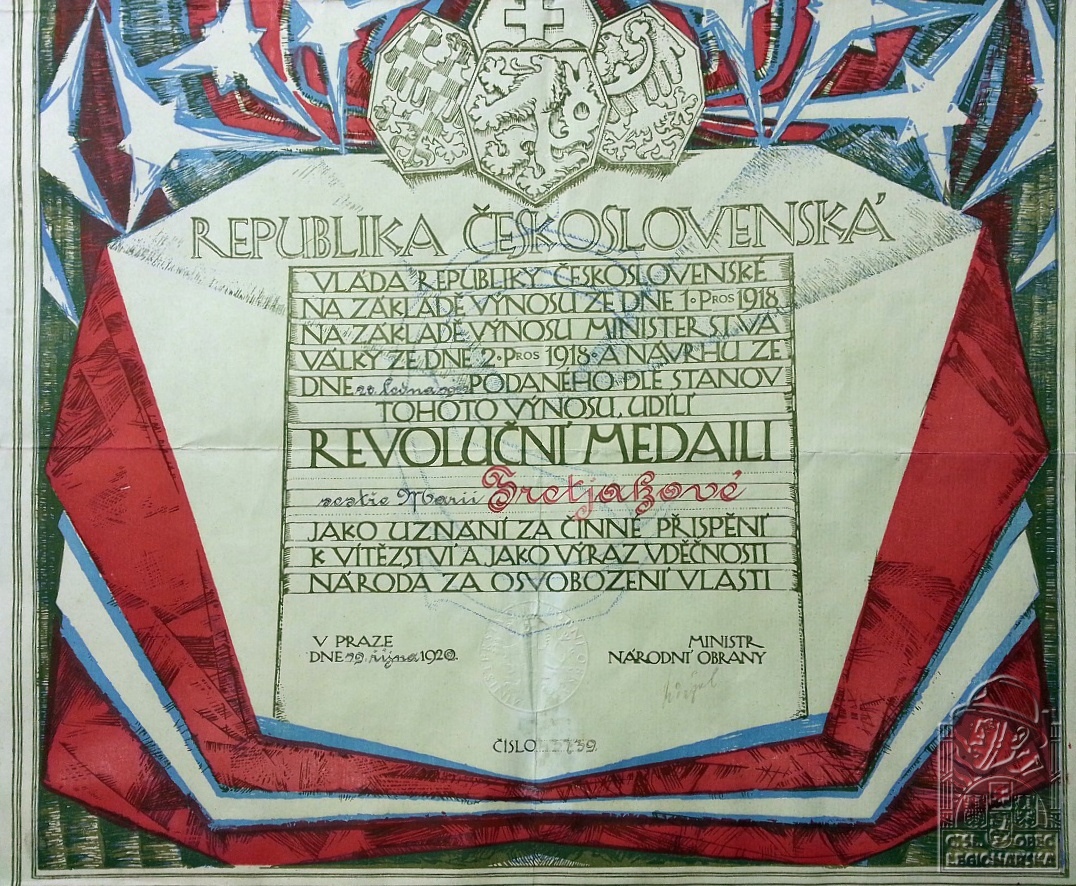 REPUBLIKA ČESKOSLOVENSKÁ
VLÁDA REPUBLIKY ČESKOSLOVENSKÉ
NA ZÁKLADĚ VÝNOSU ZE DNE 1·PROS 1918
NA ZÁKLADĚ VÝNOSU MINISTERSTVA
VÁLKY ZE DNE 2·PROS 1918· A NÁVRHU ZE
DNE ledna PODANÉHO DLE STANOV
TOHOTO VÝNOSU, UDÍLÍ
REVOLUČNÍ MEDAILI
sestře Marii Tretjakové
JAKO UZNÁNÍ ZA ČINNÉ PŘISPĚNÍ
K VÍTĚZSTVÍ A JAKO VÝRAZ VDĚČNOSTI
NÁRODA ZA OSVOBOZENÍ VLASTI
V PRAZE
DNE října 1920.
MINISTR
NÁRODNÍ OBRANY
ČÍSLO
ČSL. OBEC
LEGIONÁŘSKÁ